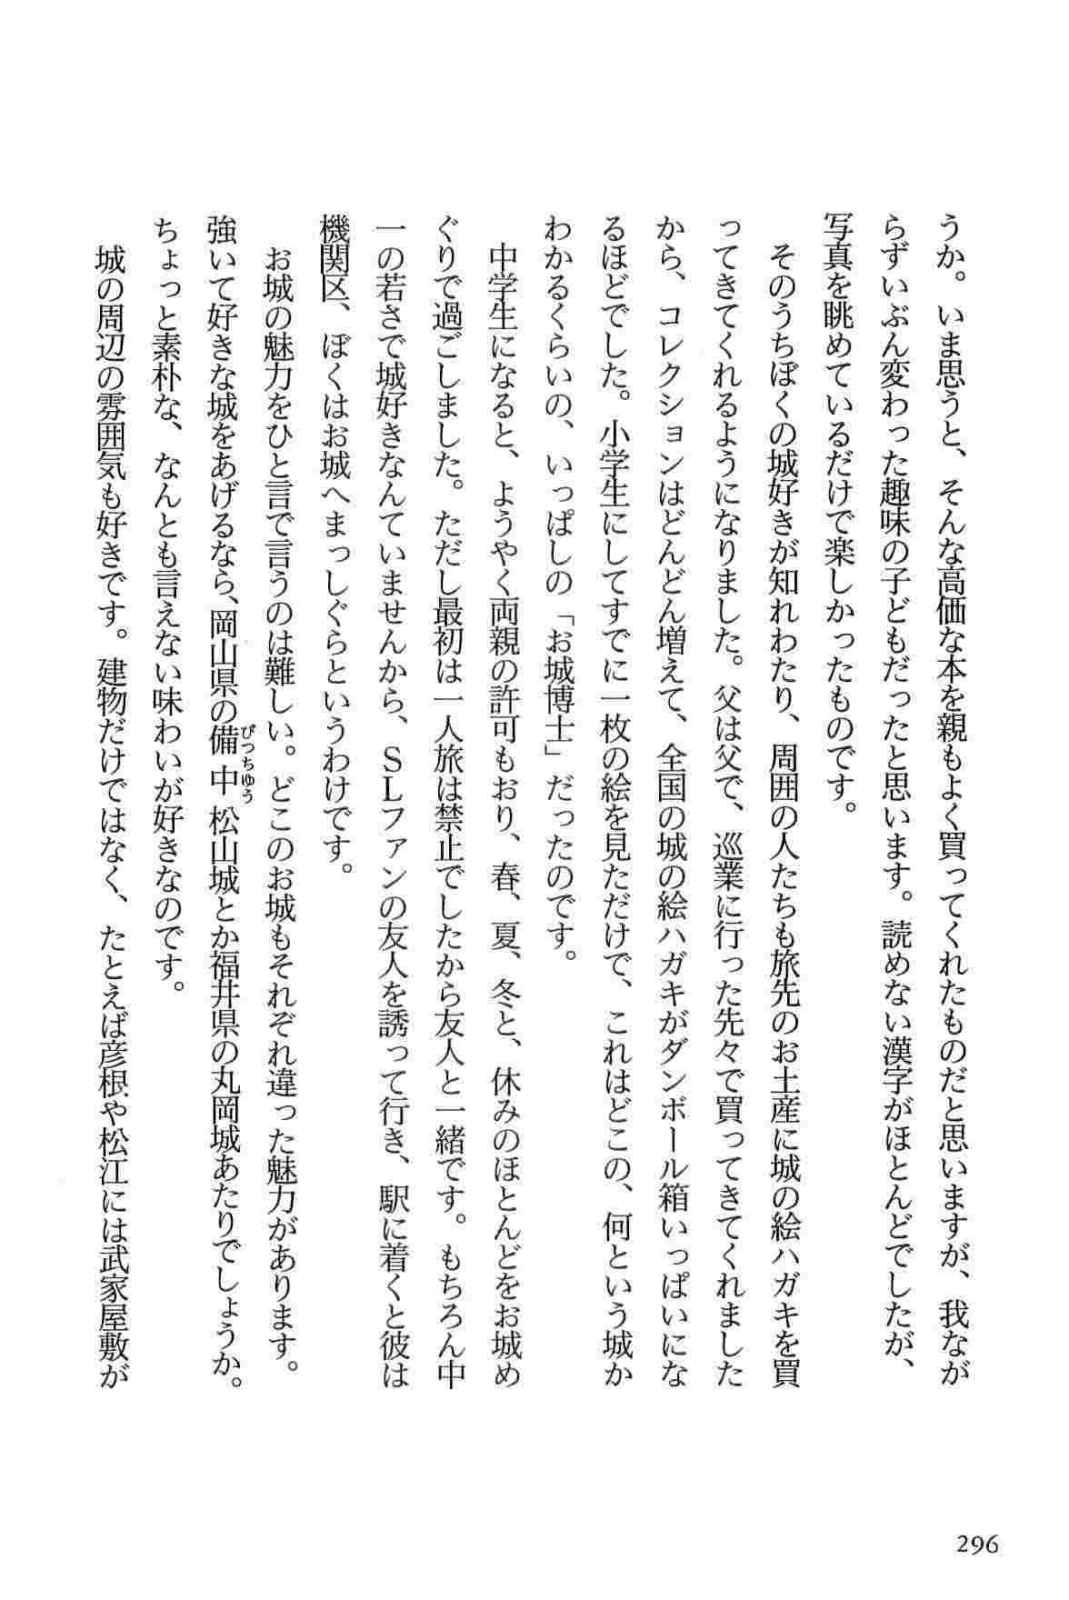 うか。いま思うと、そんな高価な本を親もよく買ってくれたものだと思いますが、我なが
らずいぶん変わった趣味の子どもだったと思います。読めない漢字がほとんどでしたが、
写真を眺めているだけで楽しかったものです。
そのうちぼくの城好きが知れわたり、周囲の人たちも旅先のお土産に城の絵ハガキを買
ってきてくれるようになりました。父は父で、巡業に行った先々で買ってきてくれました
から、コレクションはどんどん増えて、全国の城の絵ハガキがダンボール箱いっぱいにな
るほどでした。小学生にしてすでに一枚の絵を見ただけで、これはどこの、何という城か
わかるくらいの、いっぱしの「お城博士」だったのです。
中学生になると、ようやく両親の許可もおり、春、夏、冬と、休みのほとんどをお城め
ぐりで過ごしました。ただし最初は一人旅は禁止でしたから友人と一緒です。もちろん中
一の若さで城好きなんていませんから、SLファンの友人を誘って行き、駅に着くと彼は
機関区、ぼくはお城へまっしぐらというわけです。
お城の魅力をひと言で言うのは難しい。どこのお城もそれぞれ違った魅力があります。
強いて好きな城をあげるなら、岡山県の備中松山城とか福井県の丸岡城あたりでしょうか。
びつちゆう
ちょっと素朴な、なんとも言えない味わいが好きなのです。
城の周辺の雰囲気も好きです。建物だけではなく、たとえば彦根や松江には武家屋敷が
296